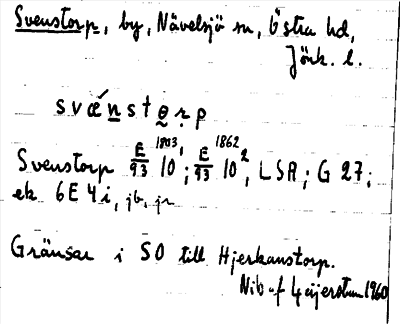 Svenstorp, by, Nävelsjö sn, Östra hd,
Jönk. l.
svǽnstɵrp
Svenstorp E/93 1803, 10; E/93 1862, 10², LSA; G 27;
ek 6E4i, jb, jr
Gränsar i SO till Hjerkanstorp.
Nib af 1960